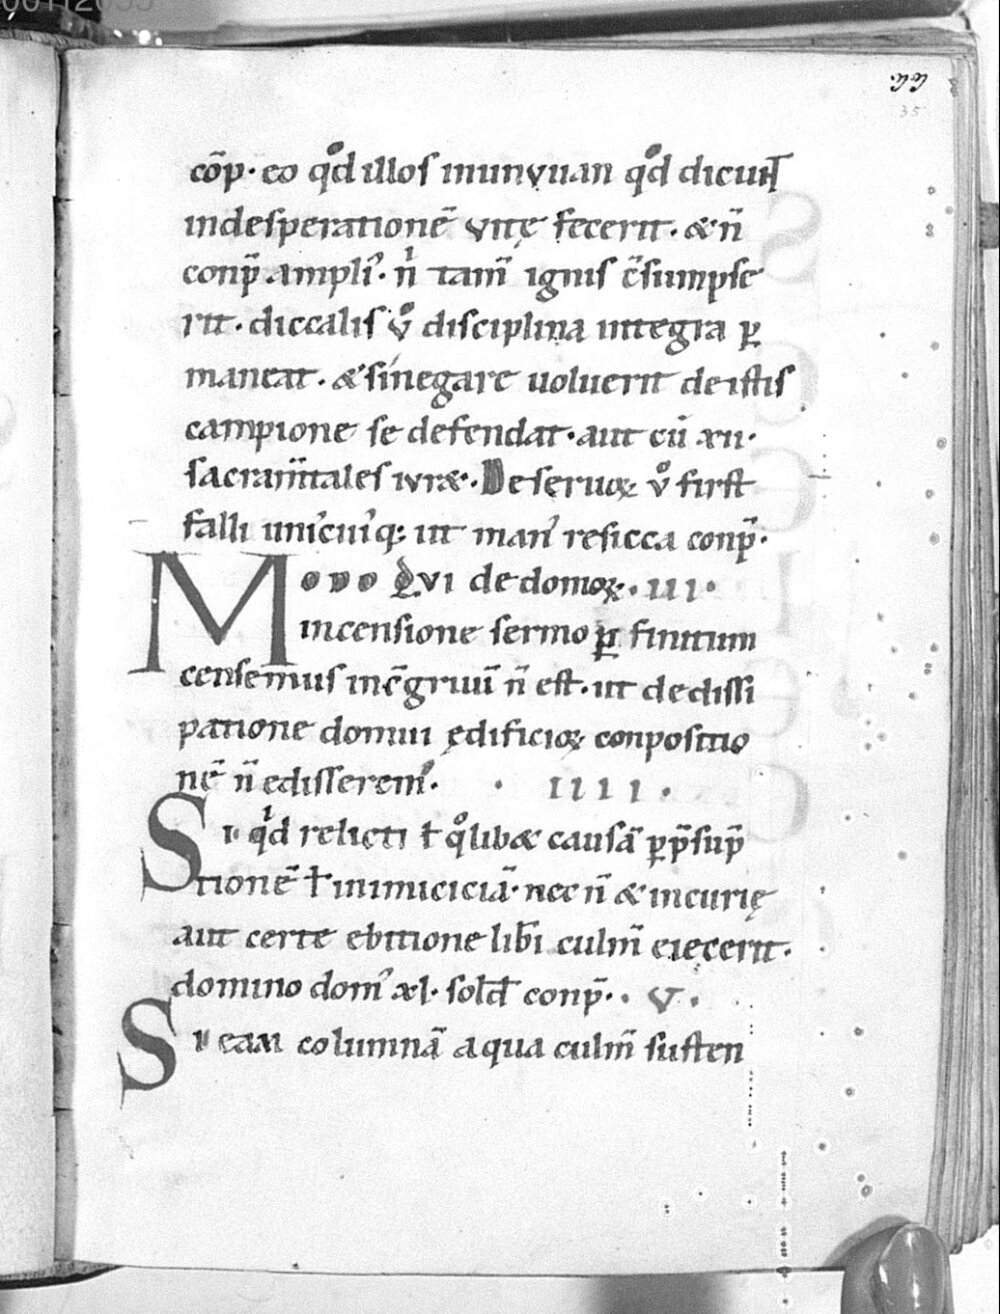 cōp· eo qͦd illos inunvuan qͦd dicunt
indesperationē vitę fecerit· &n̄
conp̄ ampli᾽· n̄ tam̄ ignis c̄sumpse
rit· diccalis vͦ disciplina integra ꝑ
maneat· & si negare uoluerit de istis
campione se defendat· aut cū xii·
sacram̄tales iur&· De seruoꝝ vͦ first
falli unicuiq; ut man᾽ resicca conp̄·
MODO QVI de domoꝝ· III·
incensione sermo ꝑ finitum
censemus inc̄gruū n̄ est· ut de dissi
patione domui ędificioꝝ conpositio
nē n̄ edisserem᾽· · IIII·
Si qͥd relicti ł qͦlib& causā ꝑp̄sūp
tionē ł inimiciciā· nec n̄ & incurię
aut certe ebitione lib̄i culm̄ eiecerit·
domino dom᾽ xl· sold̄ conp̄·· V·
Si eam columnā a qua culm̄ susten
35